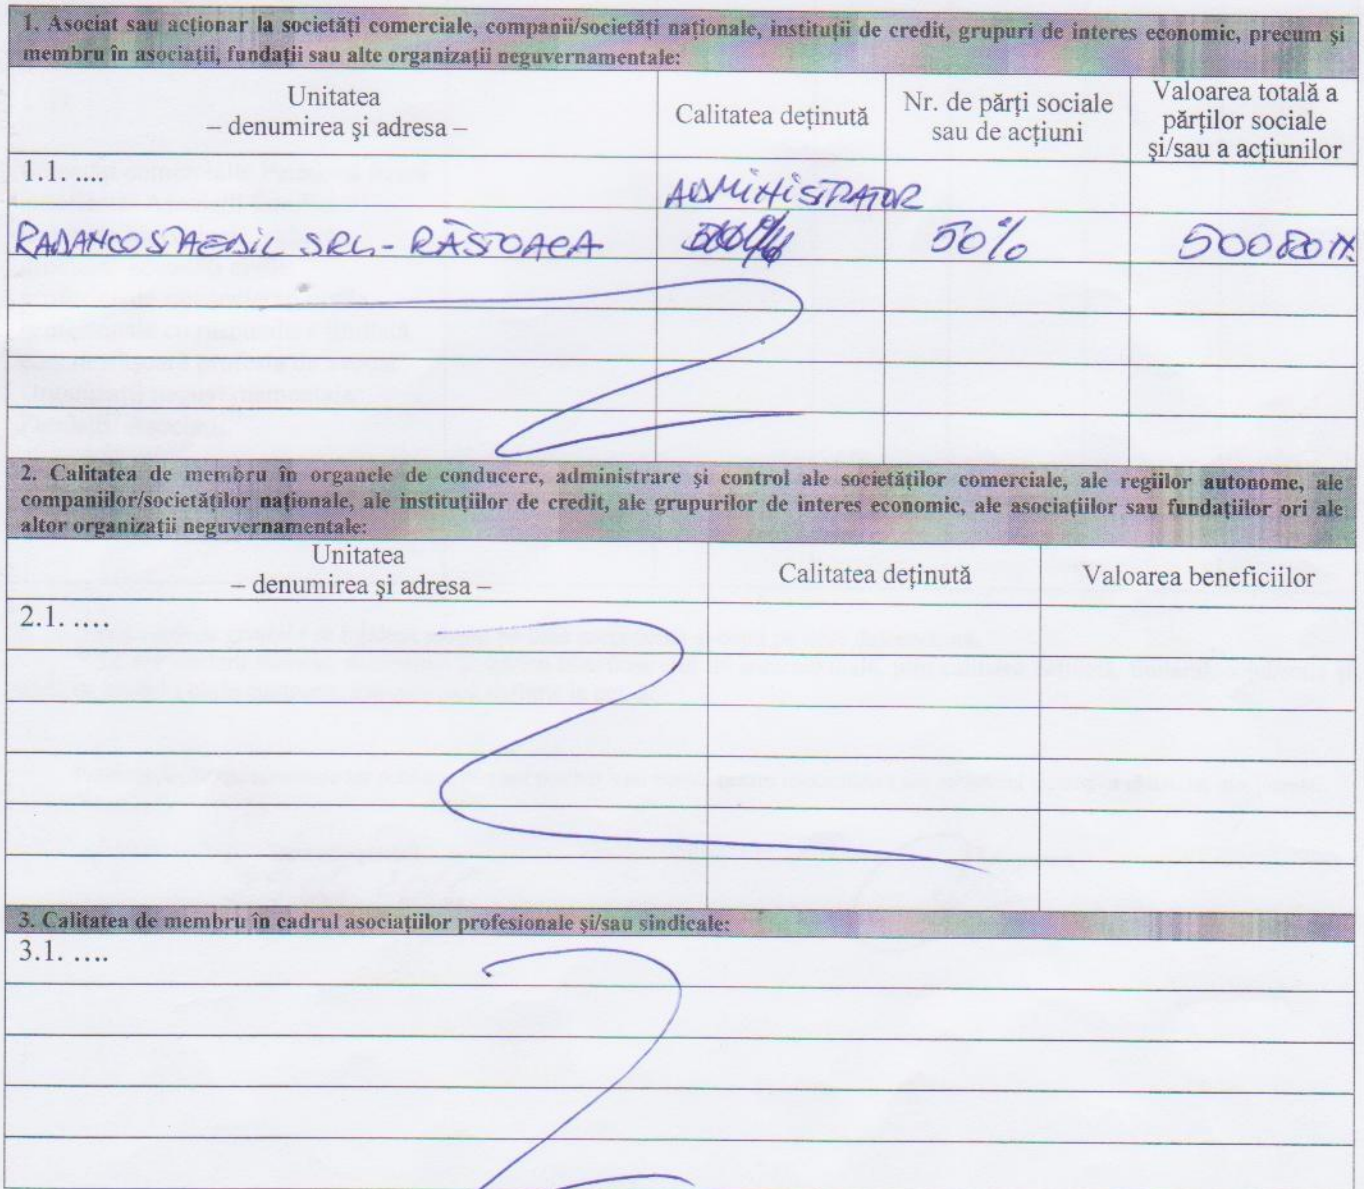 1. Asociat sau acționar la societăți comerciale, companii/societăți naționale, instituții de credit, grupuri de interes economic, precum și
membru în asociații, fundații sau alte organizații neguvernamentale:
Unitatea
– denumirea și adresa –
Calitatea deținută
Nr. de părți sociale
sau de acțiuni
Valoarea totală a
părților sociale
și/sau a acțiunilor
1.1. ....
ADMINISTRATOR
SRL - RĂSTOACA 50%
2. Calitatea de membru în organele de conducere, administrare și control ale societăților comerciale, ale regiilor autonome, ale
companiilor/societăților naționale, ale instituțiilor de credit, ale grupurilor de interes economic, ale asociațiilor sau fundațiilor ori ale
altor organizații neguvernamentale:
Unitatea
– denumirea și adresa –
Calitatea deținută
Valoarea beneficiilor
2.1. ....
3. Calitatea de membru în cadrul asociațiilor profesionale și/sau sindicale:
3.1. ....